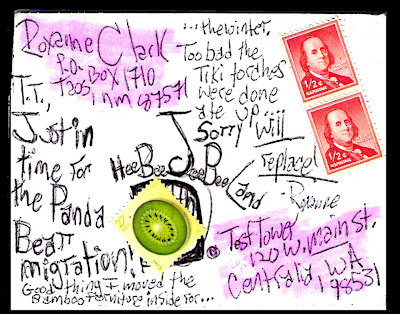 Roxanne Clark
P.O. BOX 1710
Taos, nm 87571
T.T.,
Just in
time for
the Panda
Bear
migration!
Good thing I moved the
Bamboo furniture inside for...
...the winter.
Too bad the
Tiki torches
were done
ate up...
Sorry! Will
replace!
-Roxanne
HeeBeeJeeBeeLand
½¢
½¢
Test Tower
120 W. main St.
Centralia, WA
98531